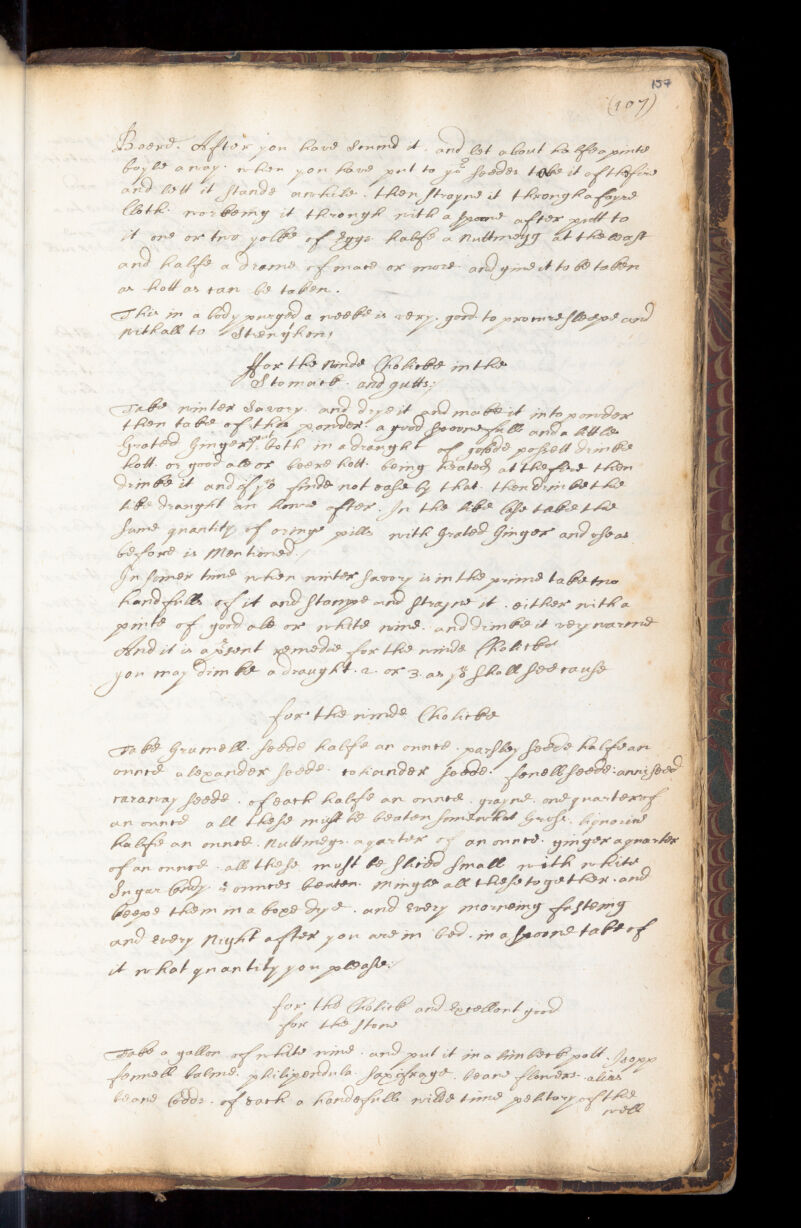 157
(107)
Boerd. After you have scumd it. and let about halfe a pinte
boyle away. when you have put to yor seedes take it of the fire
and lett it stande awhile. then strayne it through a fayre
Cloth. workeing it through with a spoone after putt to
it one or two yolke of Eggs halfe a Nuttmegg at the least
and halfe a drame of mace or more. and give it to be taken
as hott as can be taken.
This in a body purged a weeke is very. good to procure sleepe and
withall to Strengthen;
ffor the winde Cholicke in the
Stomack. and gutts;
Take winter Savory. and drye it and make it into powder
then take of this powder. a good spoonefull and a little
Grated Ginger. both in a draught of possett drinke
hott. or good ale or beere hott. being heated at the fire then
drinke it and if yo finde not ease by that. then drinke the
like draught an howre after. In the like case take the
same quantity of oringe pills with Grated Ginger and use as
before is Mentioned./
In somer time when winter savory is in the prime take two
handfulls of it and Stampe and Strayne it. either with a
pinte of good ale or white wine. and drinke it very warme
And it is a psent remedie for the winde Cholicke
you may drinke a draught. 2. or 3. as yo shall see cause
for the winde Cholicke
Take Grumell. seede halfe an ounce. parsley seede halfe an
ounce alexander seede. coliander seede. fenell seede: anniseed
caraway seede. of each halfe an ounce. grayne. one quarter of
an ounce all these must be beaten somewhat Grose. liquorice
halfe an ounce. Nuttmegs. a quarter of an ounce. ginger a quarter
of an ounce. all these must be sliced small with white
Sugar Candy. ounces beaten. mingle all these together. and
keepe them in a boxe drye. and every morneing fasteing
and every Night after you are in bed. in a spoone take of
it what quantity you please;/
for the Cholick and Excellent good
for the stone
Take a gallon of white wine. and put it in a limbeck pott. Isopp
fennell balme. philipendula. saxifrage. beane flowers. alias
beane Codds. of each a handefull wilde time pelitory of the
wall